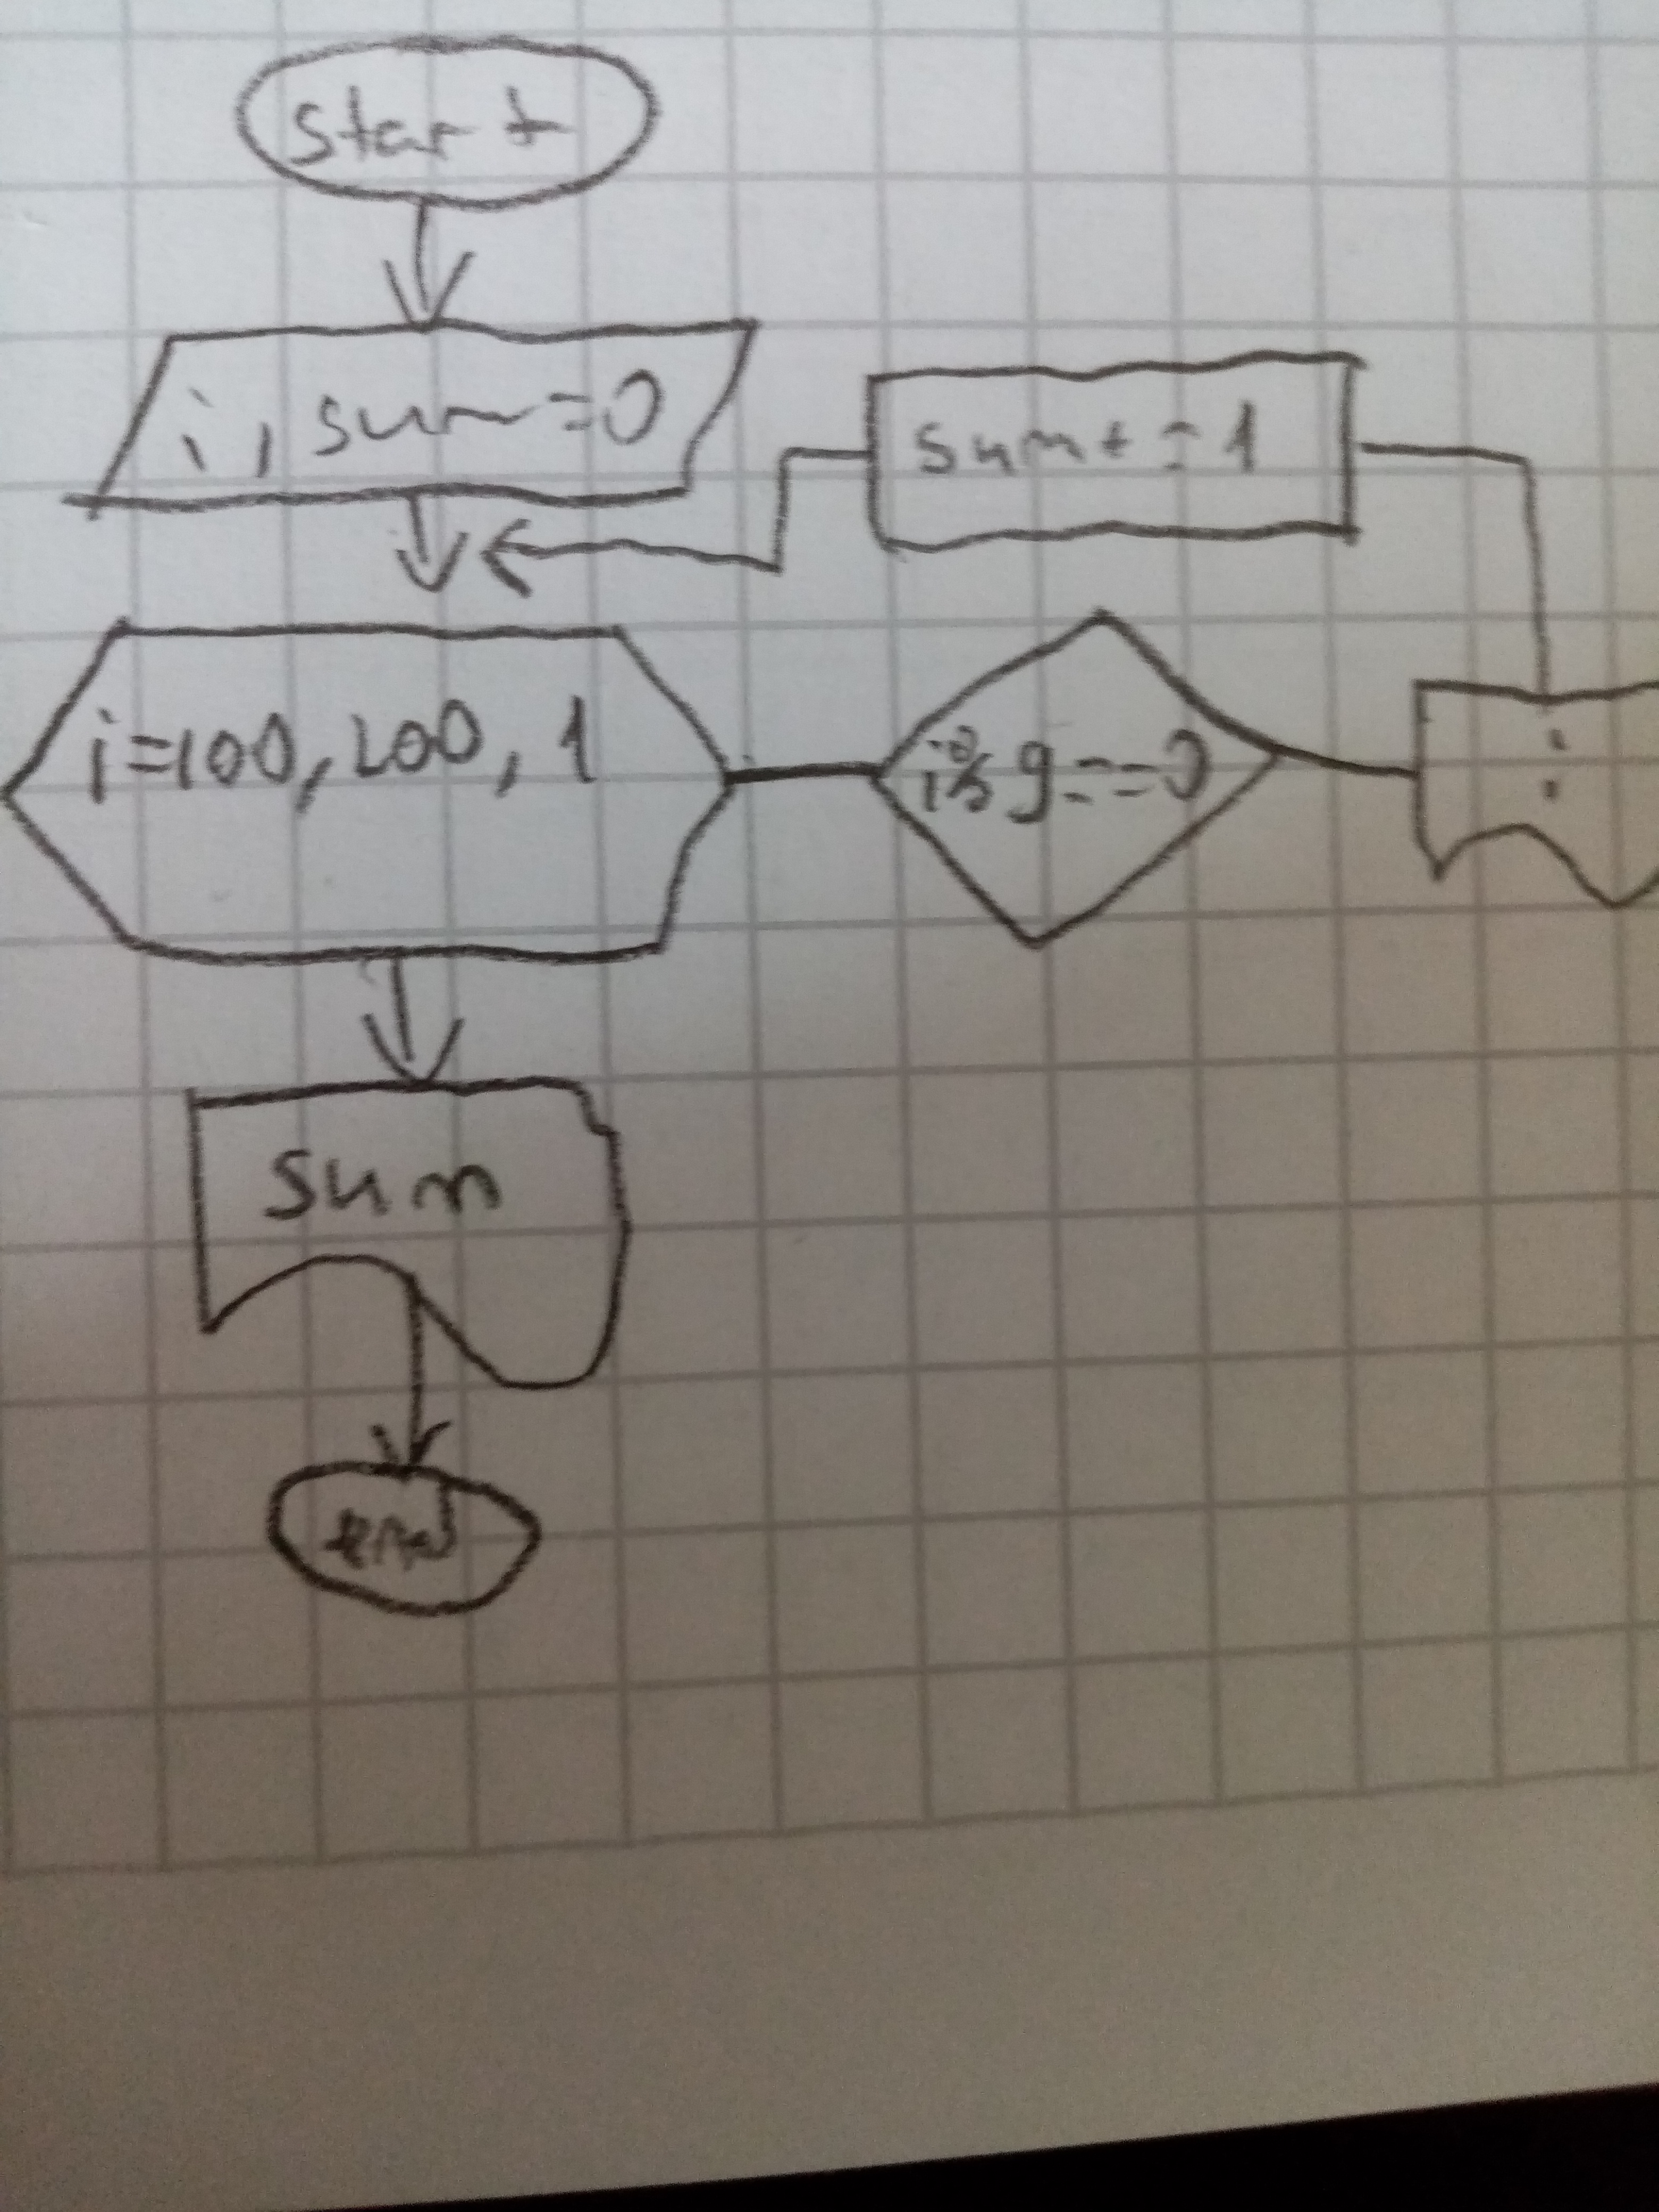 start
i, sum=0
sum+=1
i=100, 200, 1
i%9==0
i
sum
end